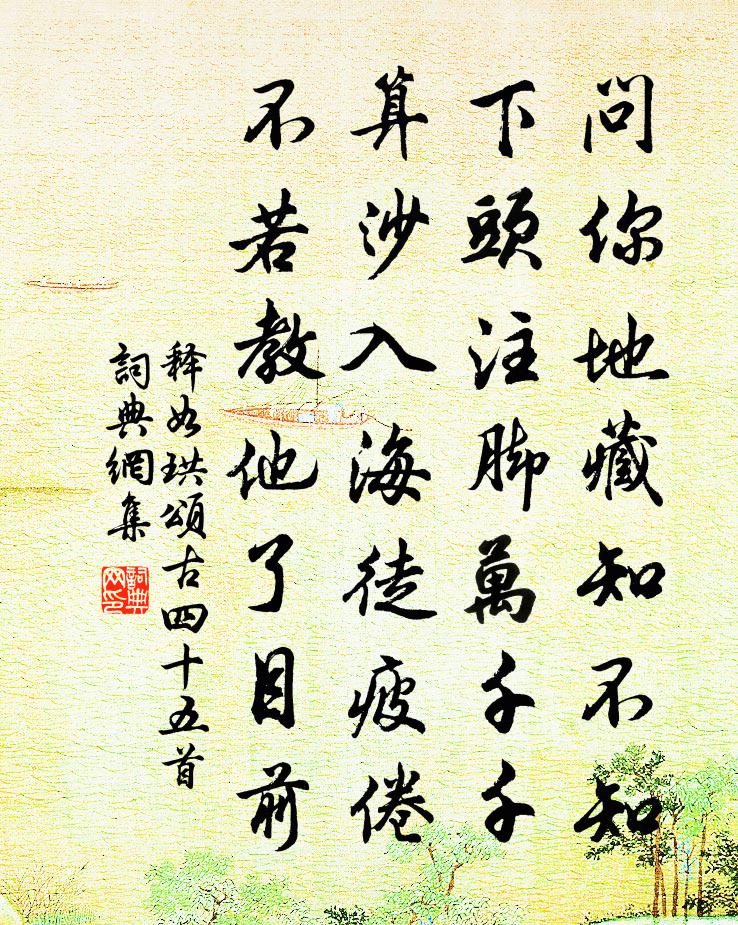 問你地藏知不知
下頭注脚萬千千
算沙入海徒疲倦
不若教他了目前
释如珙頌古四十五首
詞典網集
詞典
网印